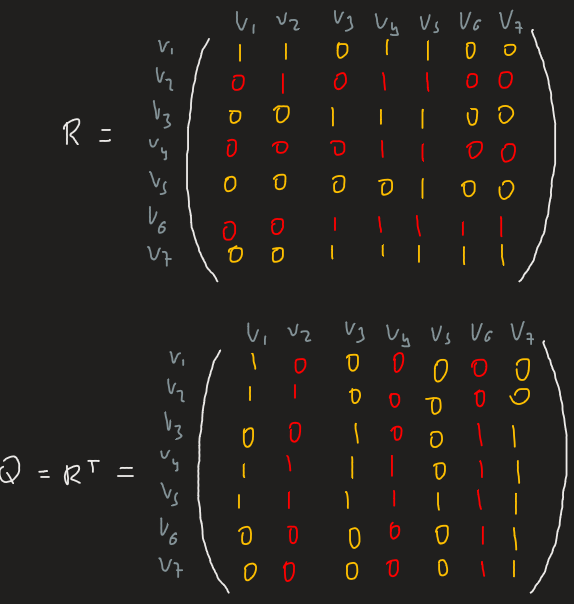 V₁ V₂ V₃ V₄ V₅ V₆ V₇
V₁ 1 1 0 1 1 0 0
V₂ 0 1 0 1 1 0 0
V₃ 0 0 1 1 1 0 0
R = V₄ 0 0 0 1 1 0 0
V₅ 0 0 0 0 1 0 0
V₆ 0 0 1 1 1 1 1
V₇ 0 0 1 1 1 1 1
V₁ V₂ V₃ V₄ V₅ V₆ V₇
V₁ 1 0 0 0 0 0 0
V₂ 1 1 0 0 0 0 0
V₃ 0 0 1 0 0 1 1
Q = Rᵀ = V₄ 1 1 1 1 0 1 1
V₅ 1 1 1 1 1 1 1
V₆ 0 0 0 0 0 1 1
V₇ 0 0 0 0 0 1 1